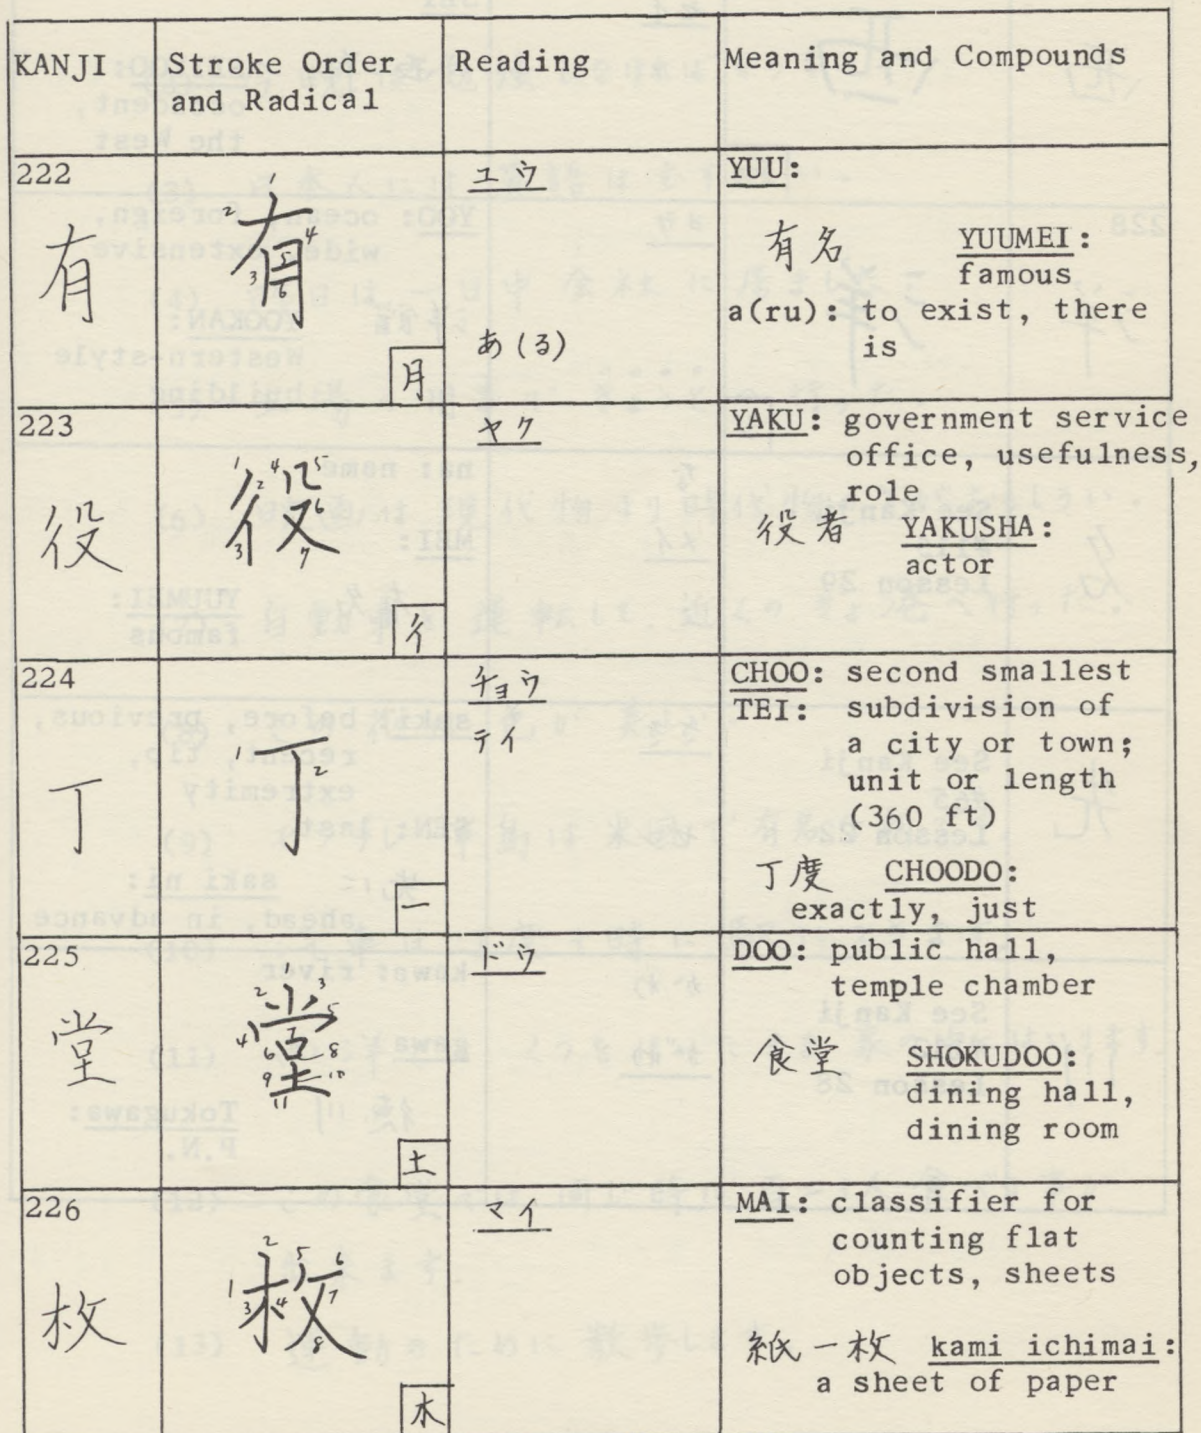 KANJI Stroke Order and Radical Reading Meaning and Compounds
222
有
有
1 2 3 4 5 6
月
ユウ
あ(る)
YUU:
有名 YUUMEI:
famous
a(ru): to exist, there
is
223
役
役
1 2 3 4 5 6 7
彳
ヤク
YAKU: government service
office, usefulness,
role
役者 YAKUSHA:
actor
224
丁
丁
1 2
一
チョウ
テイ
CHOO: second smallest
TEI: subdivision of
a city or town;
unit or length
(360 ft)
丁度 CHOODO:
exactly, just
225
堂
堂
1 2 3 4 5 6 7 8 9 10 11
土
ドウ
DOO: public hall,
temple chamber
食堂 SHOKUDOO:
dining hall,
dining room
226
枚
枚
1 2 3 4 5 6 7 8
木
マイ
MAI: classifier for
counting flat
objects, sheets
紙一枚 kami ichimai:
a sheet of paper